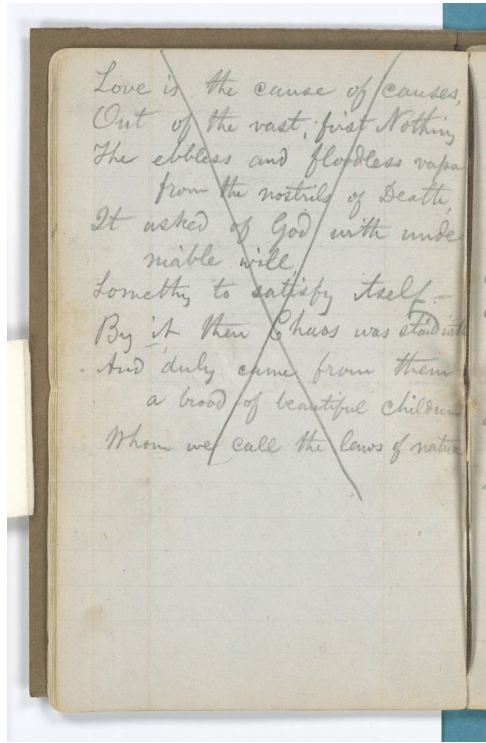 Love is the cause of causes,
Out of the vast, first Nothing
The ebbless and floodless vapo
from the nostrils of Death,
It asked of God with unde-
niable will,
Somethg to satisfy itself.—
By it then Chaos was staid with
And duly came from them
a brood of beautiful children
Whom we call the laws of nature